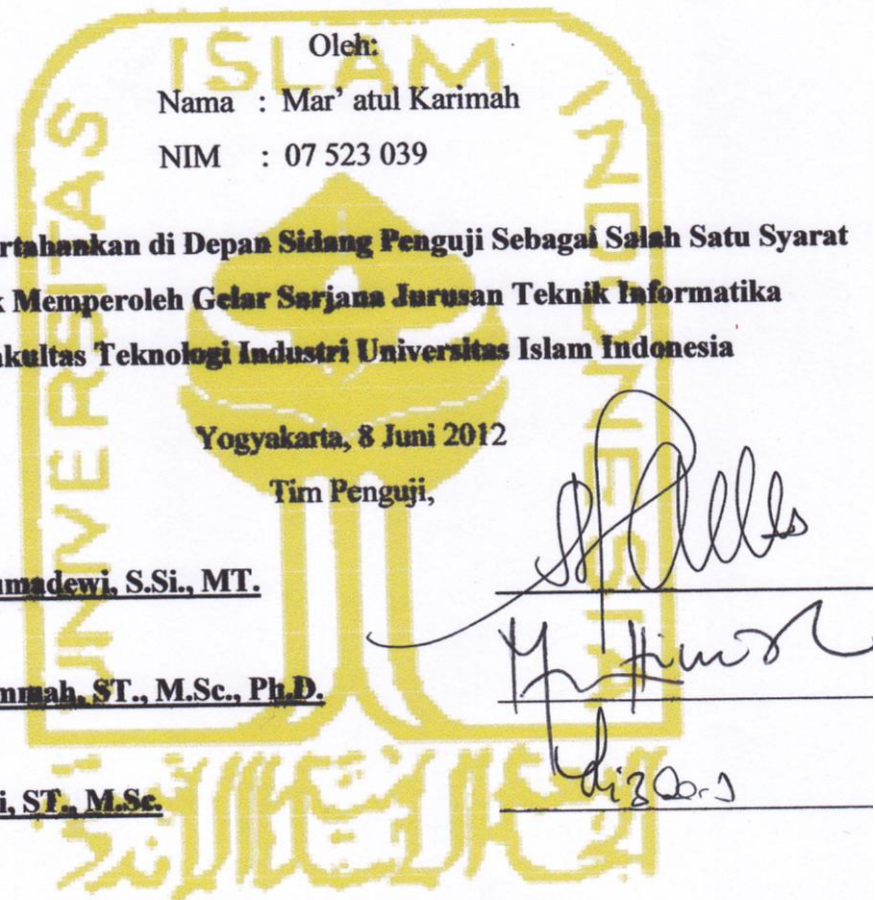 Oleh:
Nama : Mar' atul Karimah
NIM : 07 523 039
rtahankan di Depan Sidang Penguji Sebagai Salah Satu Syarat
k Memperoleh Gelar Sarjana Jurusan Teknik Informatika
akultas Teknologi Industri Universitas Islam Indonesia
Yogyakarta, 8 Juni 2012
Tim Penguji,
umadewi, S.Si., MT.
mmah, ST., M.Sc., Ph.D.
i, ST., M.Sc.
UNIVERSITAS ISLAM INDONESIA